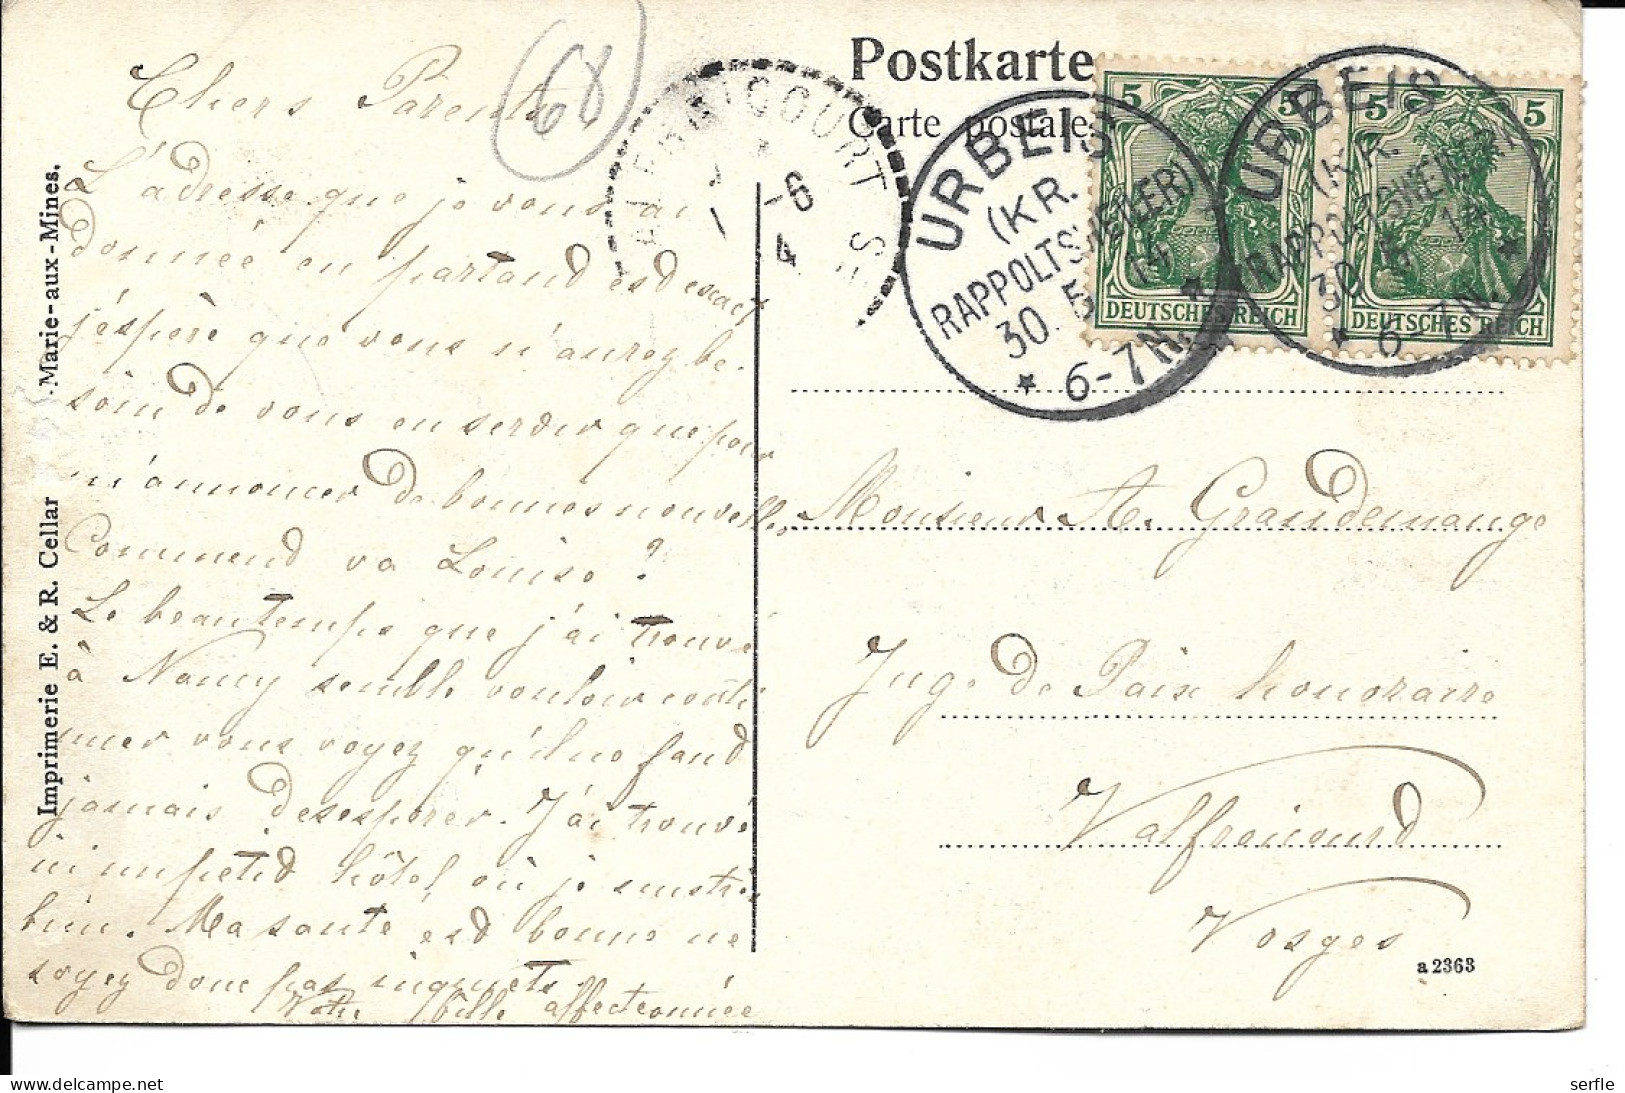 Postkarte
Carte postale
68
URBEIS
(KR.
RAPPOLTSWEILER)
30. 5 14
6-7N.
URBEIS
(KR.
RAPPOLTSWEILER)
30. 5 14
6-7N.
5 5
DEUTSCHES REICH
5 5
DEUTSCHES REICH
COURT
1 -6
14
Chers Parents
L'adresse que je vous ai
donnée en partand esd exact
j'éspère que vous n'aurez be-
soin de vous en servir que pour
m'annoncer de bonnes nouvelles
Commend va Louise ?
Le beau temps que j'ai trouvé
à Nancy semble vouloir conti
nuer vous voyez qu'il ne faud
jamais desesperer. J'ai trouvé
ici un petid hôtel où je suis très
bien. Ma santé esd bonne ne
soyez donc pas inquiets.
Votre fille affectionnée
Imprimerie E. & R. Cellar Marie-aux-Mines.
Monsieur A. Grandemange
Juge de Paix honoraire
Valfroicourd
Vosges
a 2363
delcampe.net
serfle